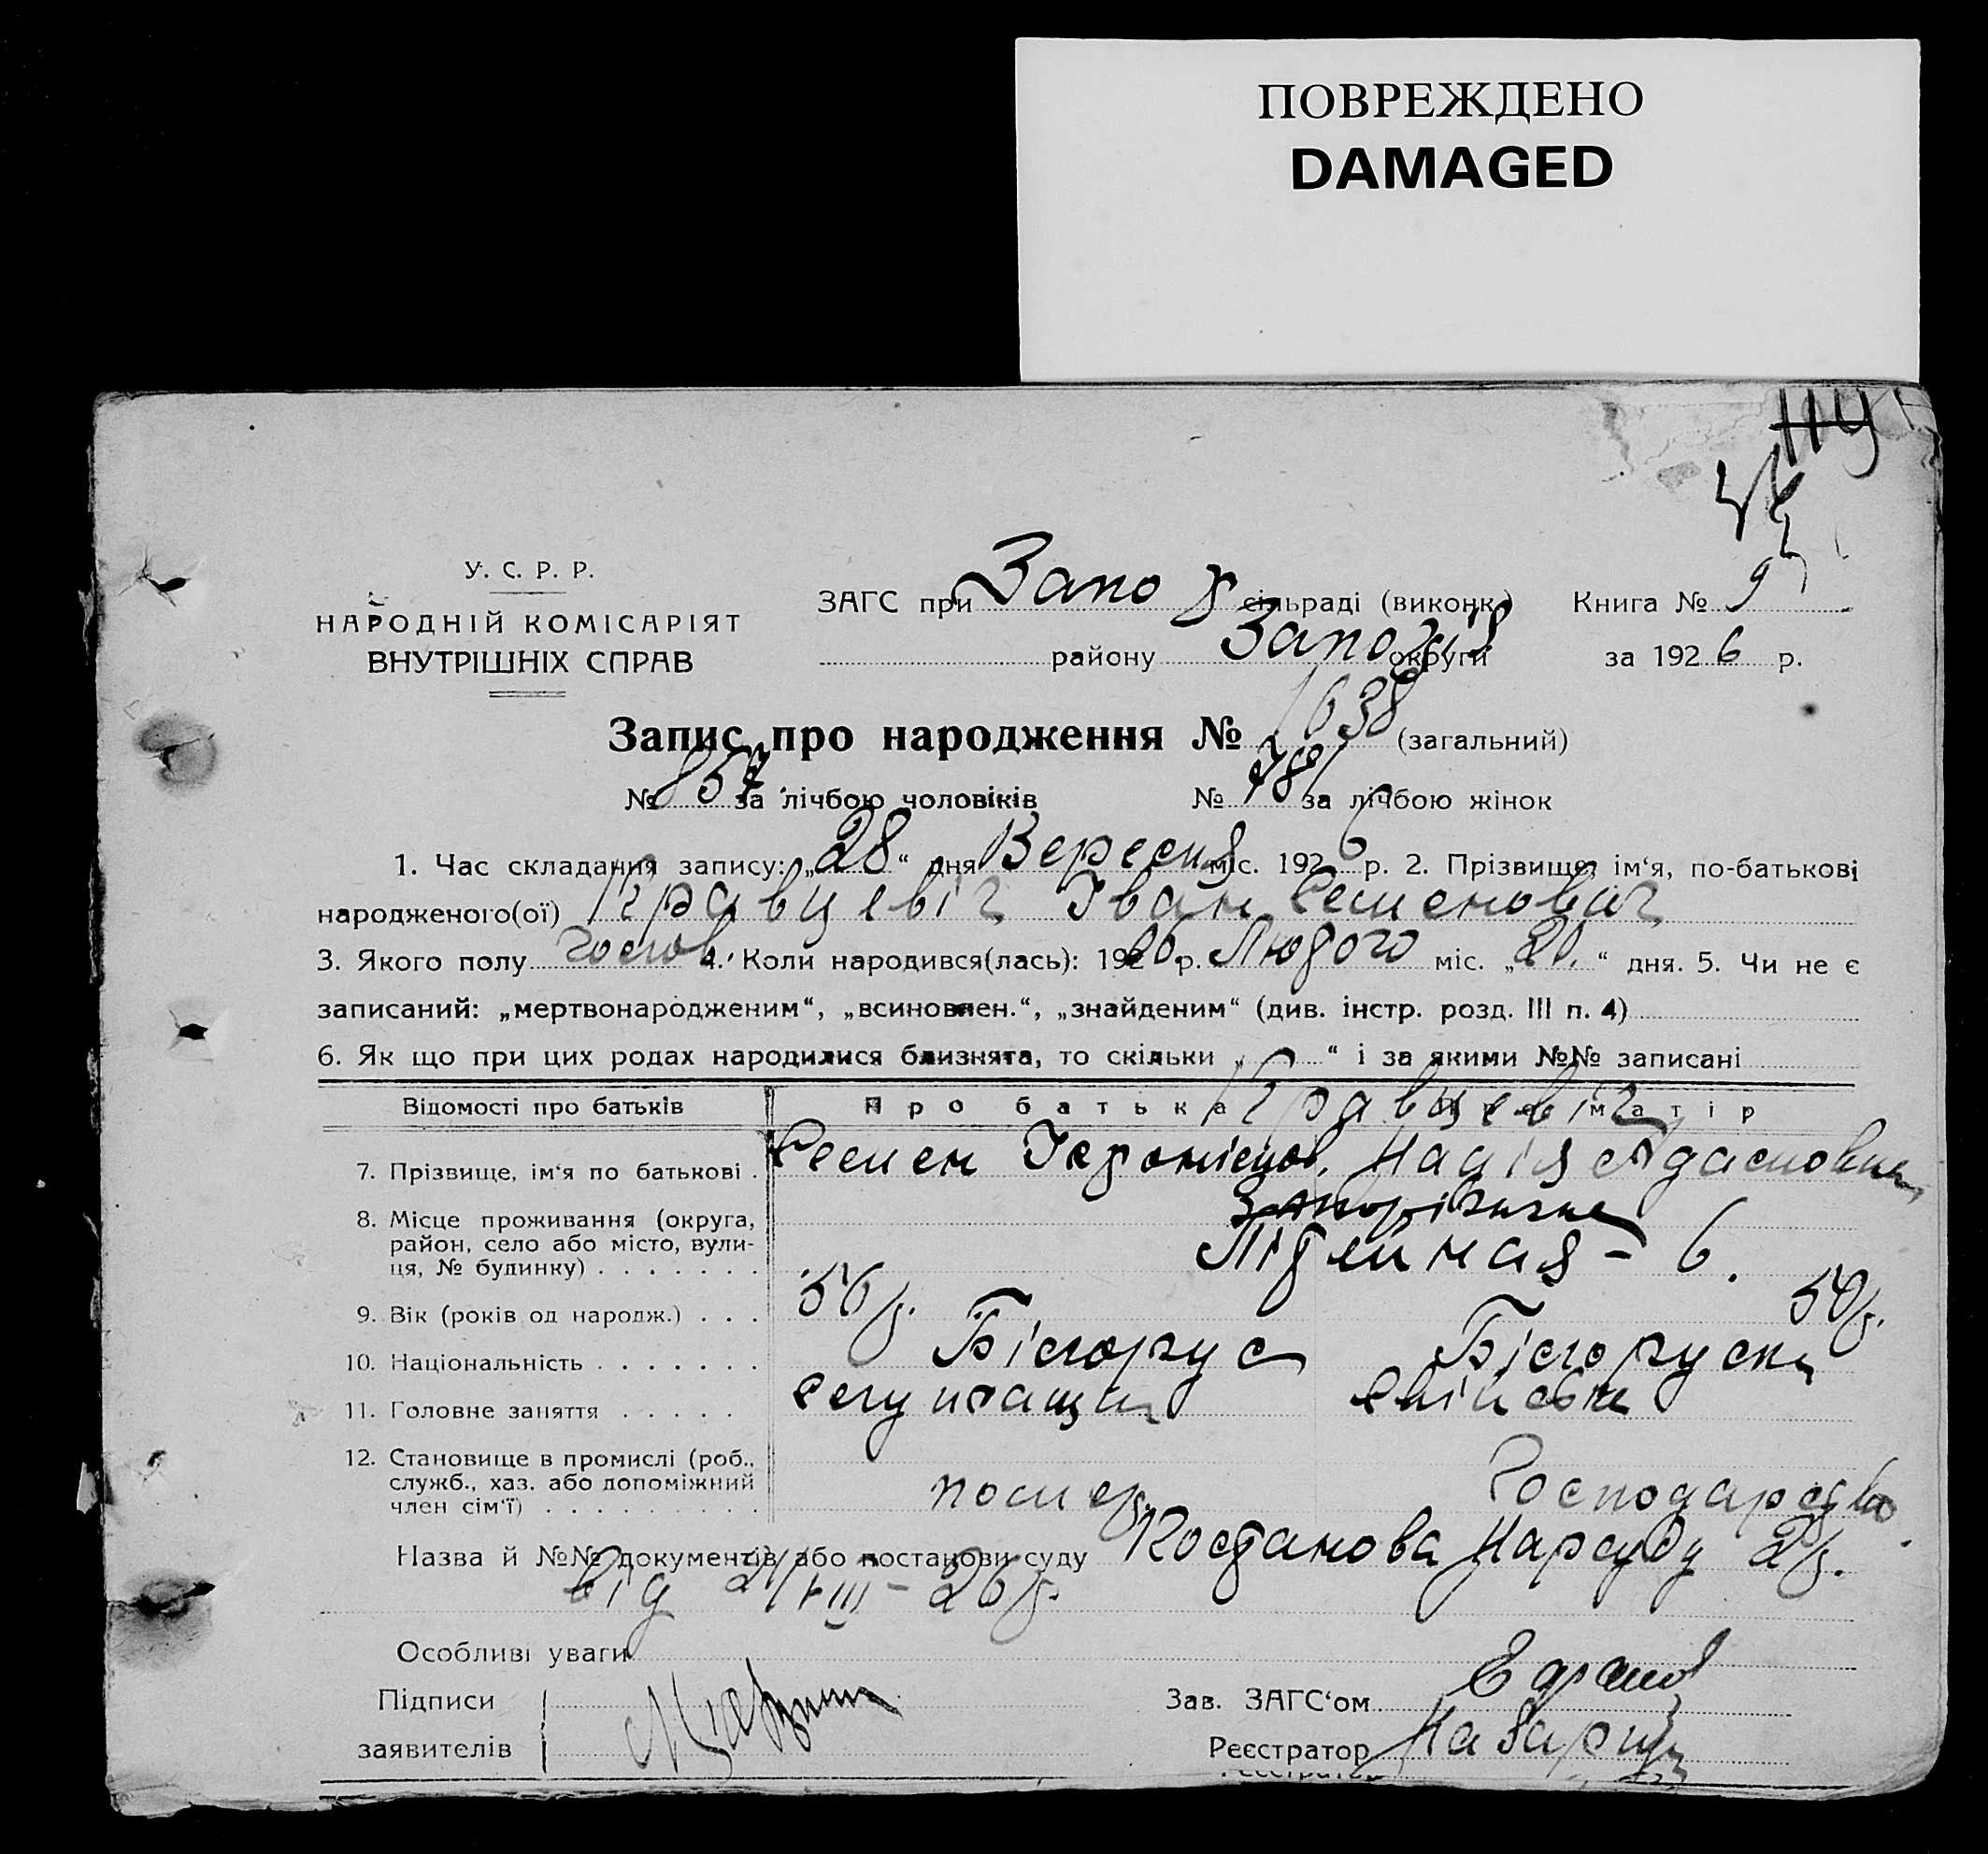 ПОВРЕЖДЕНО
DAMAGED
114
У. С. Р. Р.
НАРОДНІЙ КОМІСАРІЯТ
ВНУТРІШНІХ СПРАВ
ЗАГС при Запо сільраді (виконк.) Книга № 9
району Запоріз округи за 1926 р.
Запис про народження № 1638 (загальний)
№ 857 за лічбою чоловіків № 781 за лічбою жінок
1. Час складання запису: „28“ дня Вересня міс. 1926 р. 2. Прізвище, ім‘я, по-батькові
народженого(ої) Кравцевіч Іван Семенович
3. Якого полу чолов. 4. Коли народився(лась): 1926 р. Лютого міс. „20.“ дня. 5. Чи не є
записаний: „мертвонародженим“, „всиновлен.“, „знайденим“ (див. інстр. розд. III п. 4)
6. Як що при цих родах народилися близнята, то скільки „ “ і за якими №№ записані
Відомості про батьків Про батька Про матір
Кравцевіч
7. Прізвище, ім‘я по батькові . Семен Надія Адамовна
8. Місце проживання (округа,
район, село або місто, вули-
ця, № будинку) . . . . . . . Літейная – 6.
9. Вік (років од народж.) . . . 56р. 50р.
10. Національність . . . . . . . Білорус Білоруска
11. Головне заняття . . . . . Служащий Хатне
12. Становище в промислі (роб.,
служб., хаз. або допоміжний
член сім‘ї) . . . . . . . . . помер Господарство
Назва й №№ документів або постанови суду Постанова Нарсуду 2р.
Від 21/VIII – 26р.
Особливі уваги
Підписи
заявителів
Зав. ЗАГС‘ом
Реєстратор